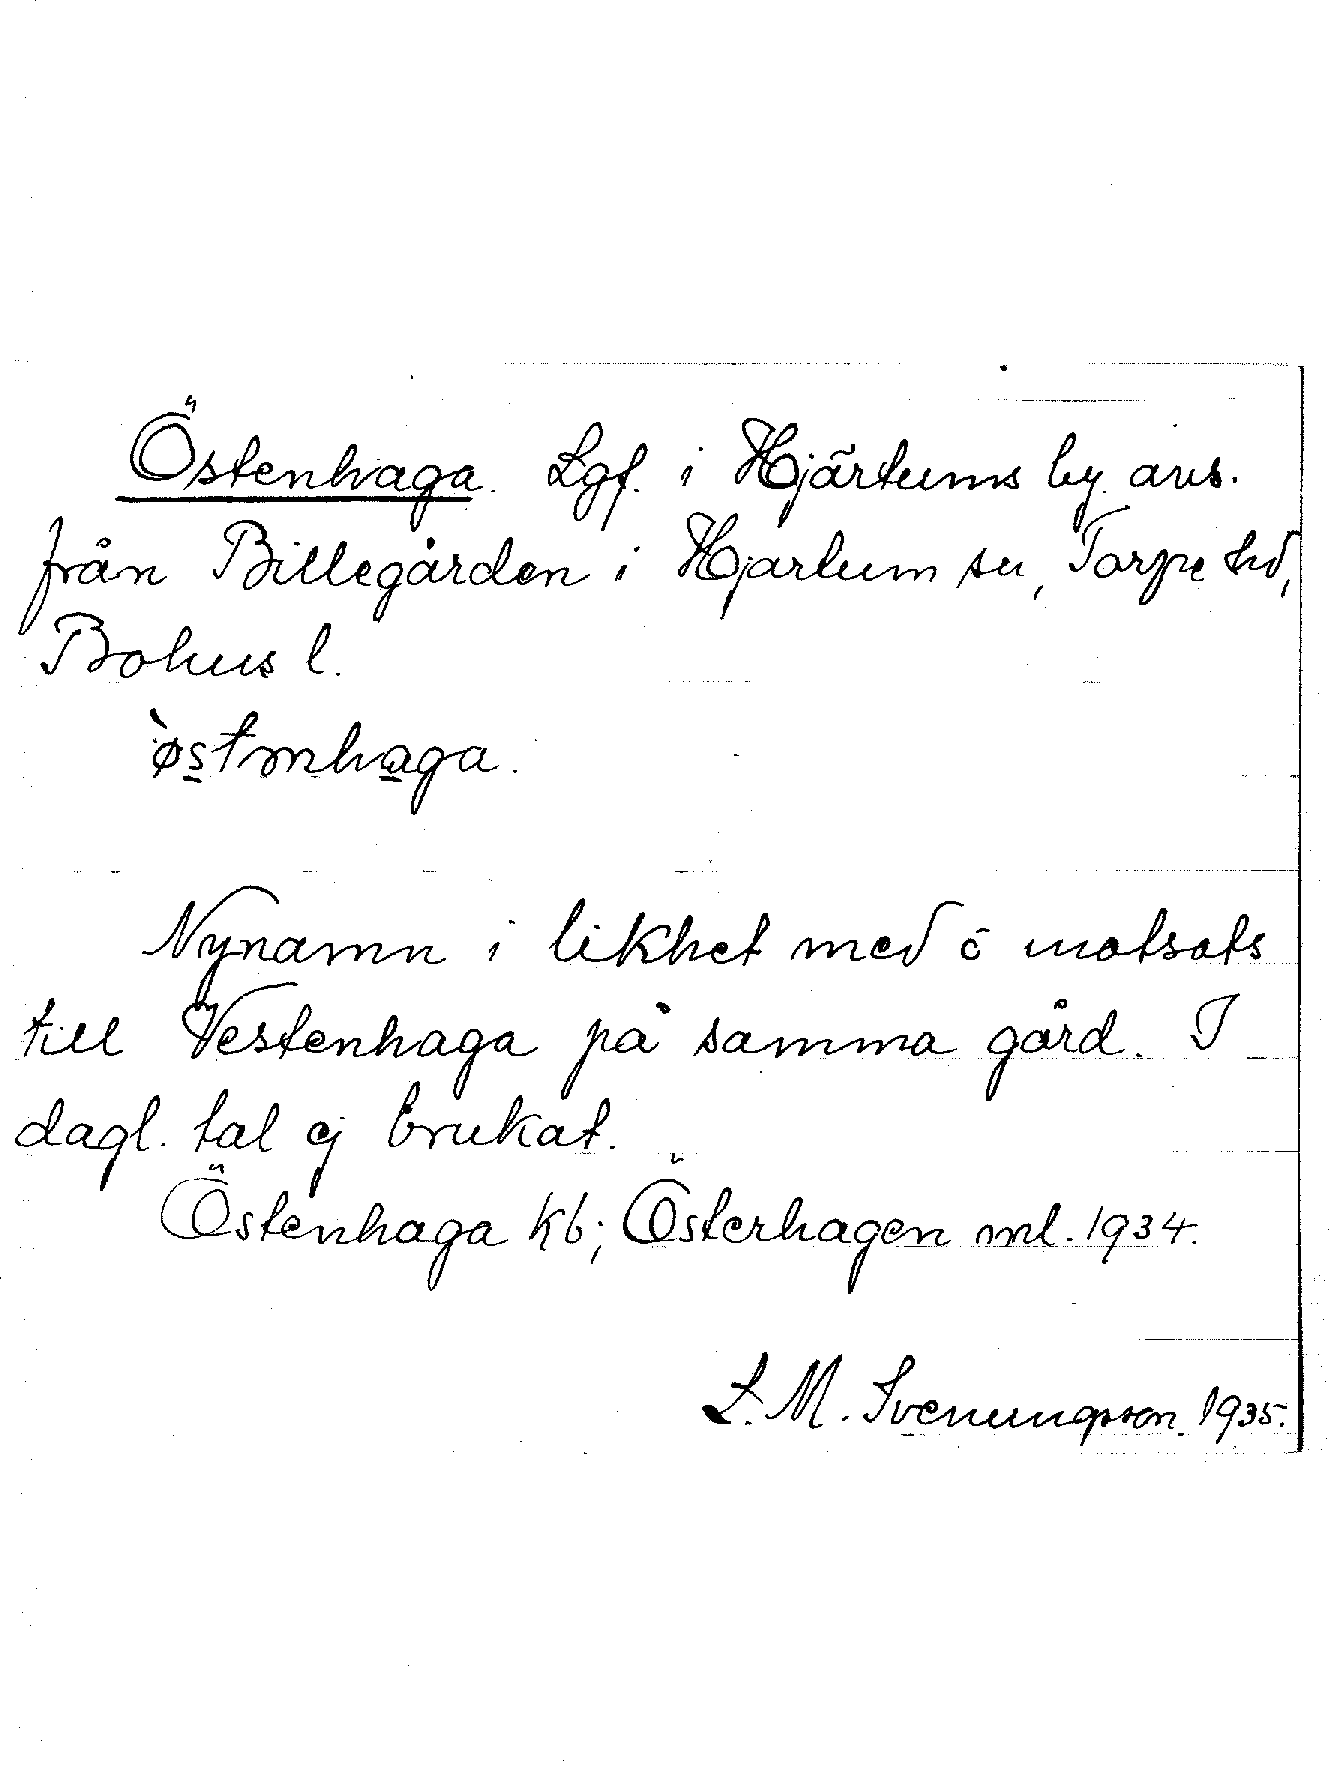 Östenhaga. Lgf. i Hjärtums by. avs.
från Billegården i Hjartum sn, Torpe hd,
Bohus l.
østənhaga.
Nynamn i likhet med o motsats
till Vestenhaga på samma gård. I
dagl. tal ej brukat.
Östenhaga kb; Österhagen ml. 1934.
L. M. Svenungsson. 1935.